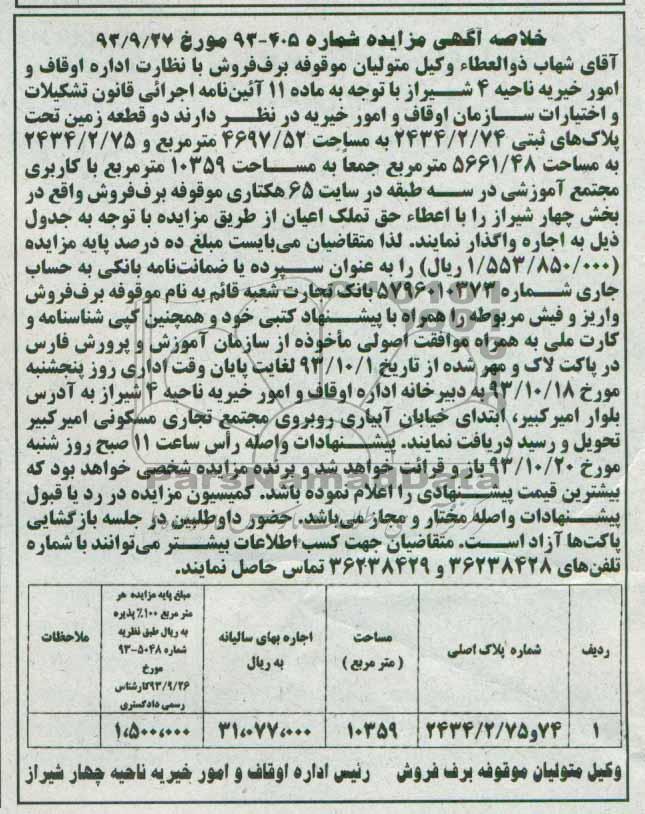 خلاصه آگهی مزایده شماره ۴۰۵-۹۳ مورخ ۹۳/۹/۲۷
آقای شهاب ذوالعطاء وکیل متولیان موقوفه برف‌فروش با نظارت اداره اوقاف و
امور خیریه ناحیه ۴ شیراز با توجه به ماده ۱۱ آئین‌نامه اجرائی قانون تشکیلات
و اختیارات سازمان اوقاف و امور خیریه در نظر دارند دو قطعه زمین تحت
پلاک‌های ثبتی ۲۴۳۴/۲/۷۴ به مساحت ۴۶۹۷/۵۲ مترمربع و ۲۴۳۴/۲/۷۵
به مساحت ۵۶۶۱/۴۸ مترمربع جمعاً به مساحت ۱۰۳۵۹ مترمربع با کاربری
مجتمع آموزشی در سه طبقه در سایت ۶۵ هکتاری موقوفه برف‌فروش واقع در
بخش چهار شیراز را با اعطاء حق تملک اعیان از طریق مزایده با توجه به جدول
ذیل به اجاره واگذار نمایند. لذا متقاضیان می‌بایست مبلغ ده درصد پایه مزایده
(۱/۵۵۳/۸۵۰/۰۰۰ ریال) را به عنوان سپرده یا ضمانت‌نامه بانکی به حساب
جاری شماره ۵۷۹۶۰۱۰۳۷۳ بانک تجارت شعبه قائم به نام موقوفه برف‌فروش
واریز و فیش مربوطه را همراه با پیشنهاد کتبی خود و همچنین کپی شناسنامه و
کارت ملی به همراه موافقت اصولی مأخوذه از سازمان آموزش و پرورش فارس
در پاکت لاک و مهر شده از تاریخ ۹۳/۱۰/۱ لغایت پایان وقت اداری روز پنجشنبه
مورخ ۹۳/۱۰/۱۸ به دبیرخانه اداره اوقاف و امور خیریه ناحیه ۴ شیراز به آدرس
بلوار امیرکبیر، ابتدای خیابان آبیاری روبروی مجتمع تجاری مسکونی امیرکبیر
تحویل و رسید دریافت نمایند. پیشنهادات واصله رأس ساعت ۱۱ صبح روز شنبه
مورخ ۹۳/۱۰/۲۰ باز و قرائت خواهد شد و برنده مزایده شخصی خواهد بود که
بیشترین قیمت پیشنهادی را اعلام نموده باشد. کمیسیون مزایده در رد یا قبول
پیشنهادات واصله مختار و مجاز می‌باشد. حضور داوطلبین در جلسه بازگشایی
پاکت‌ها آزاد است. متقاضیان جهت کسب اطلاعات بیشتر می‌توانند با شماره
تلفن‌های ۳۶۲۳۸۴۲۸ و ۳۶۲۳۸۴۲۹ تماس حاصل نمایند.
ParsNamadData
ردیف شماره پلاک اصلی مساحت (متر مربع) اجاره بهای سالیانه به ریال مبلغ پایه مزایده هر متر مربع ۱۰۰٪ پذیره به ریال طبق نظریه شماره ۵۰۴۸-۹۳ مورخ ۹۳/۹/۲۶ کارشناس رسمی دادگستری ملاحظات
۱ ۷۴و۲۴۳۴/۲/۷۵ ۱۰۳۵۹ ۳۱،۰۷۷،۰۰۰ ۱،۵۰۰،۰۰۰
وکیل متولیان موقوفه برف فروش رئیس اداره اوقاف و امور خیریه ناحیه چهار شیراز